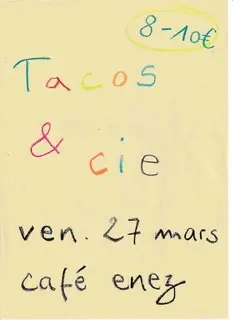 8-10€
Tacos
& cie
ven. 27 mars
café enez